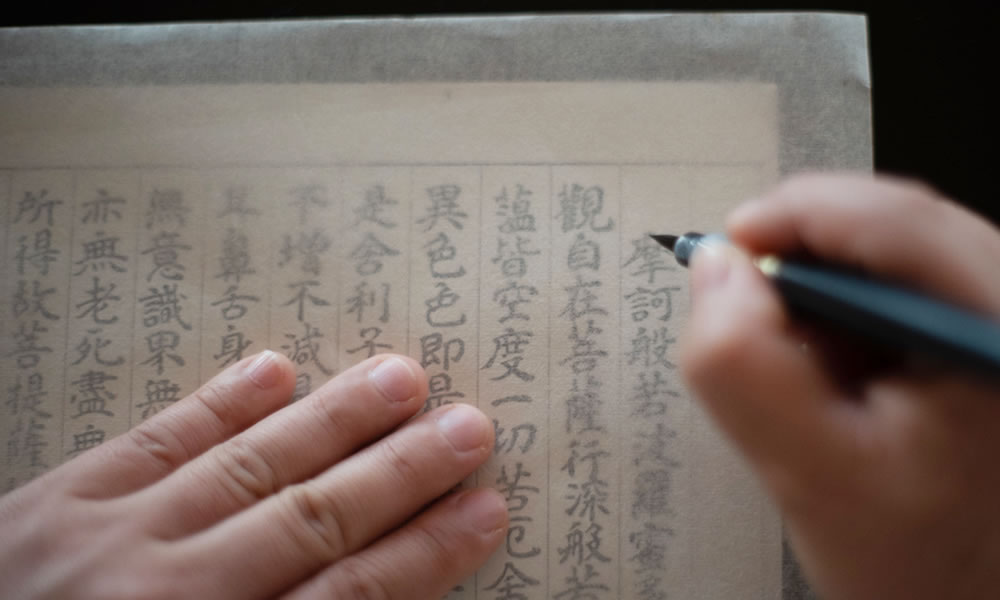 摩訶般若波羅蜜多
觀自在菩薩行深般若
蘊皆空度一切苦厄舍
異色色即是
是舍利子
不增不減是
耳鼻舌身
無意識界無
亦無老死盡無
所得故菩提薩